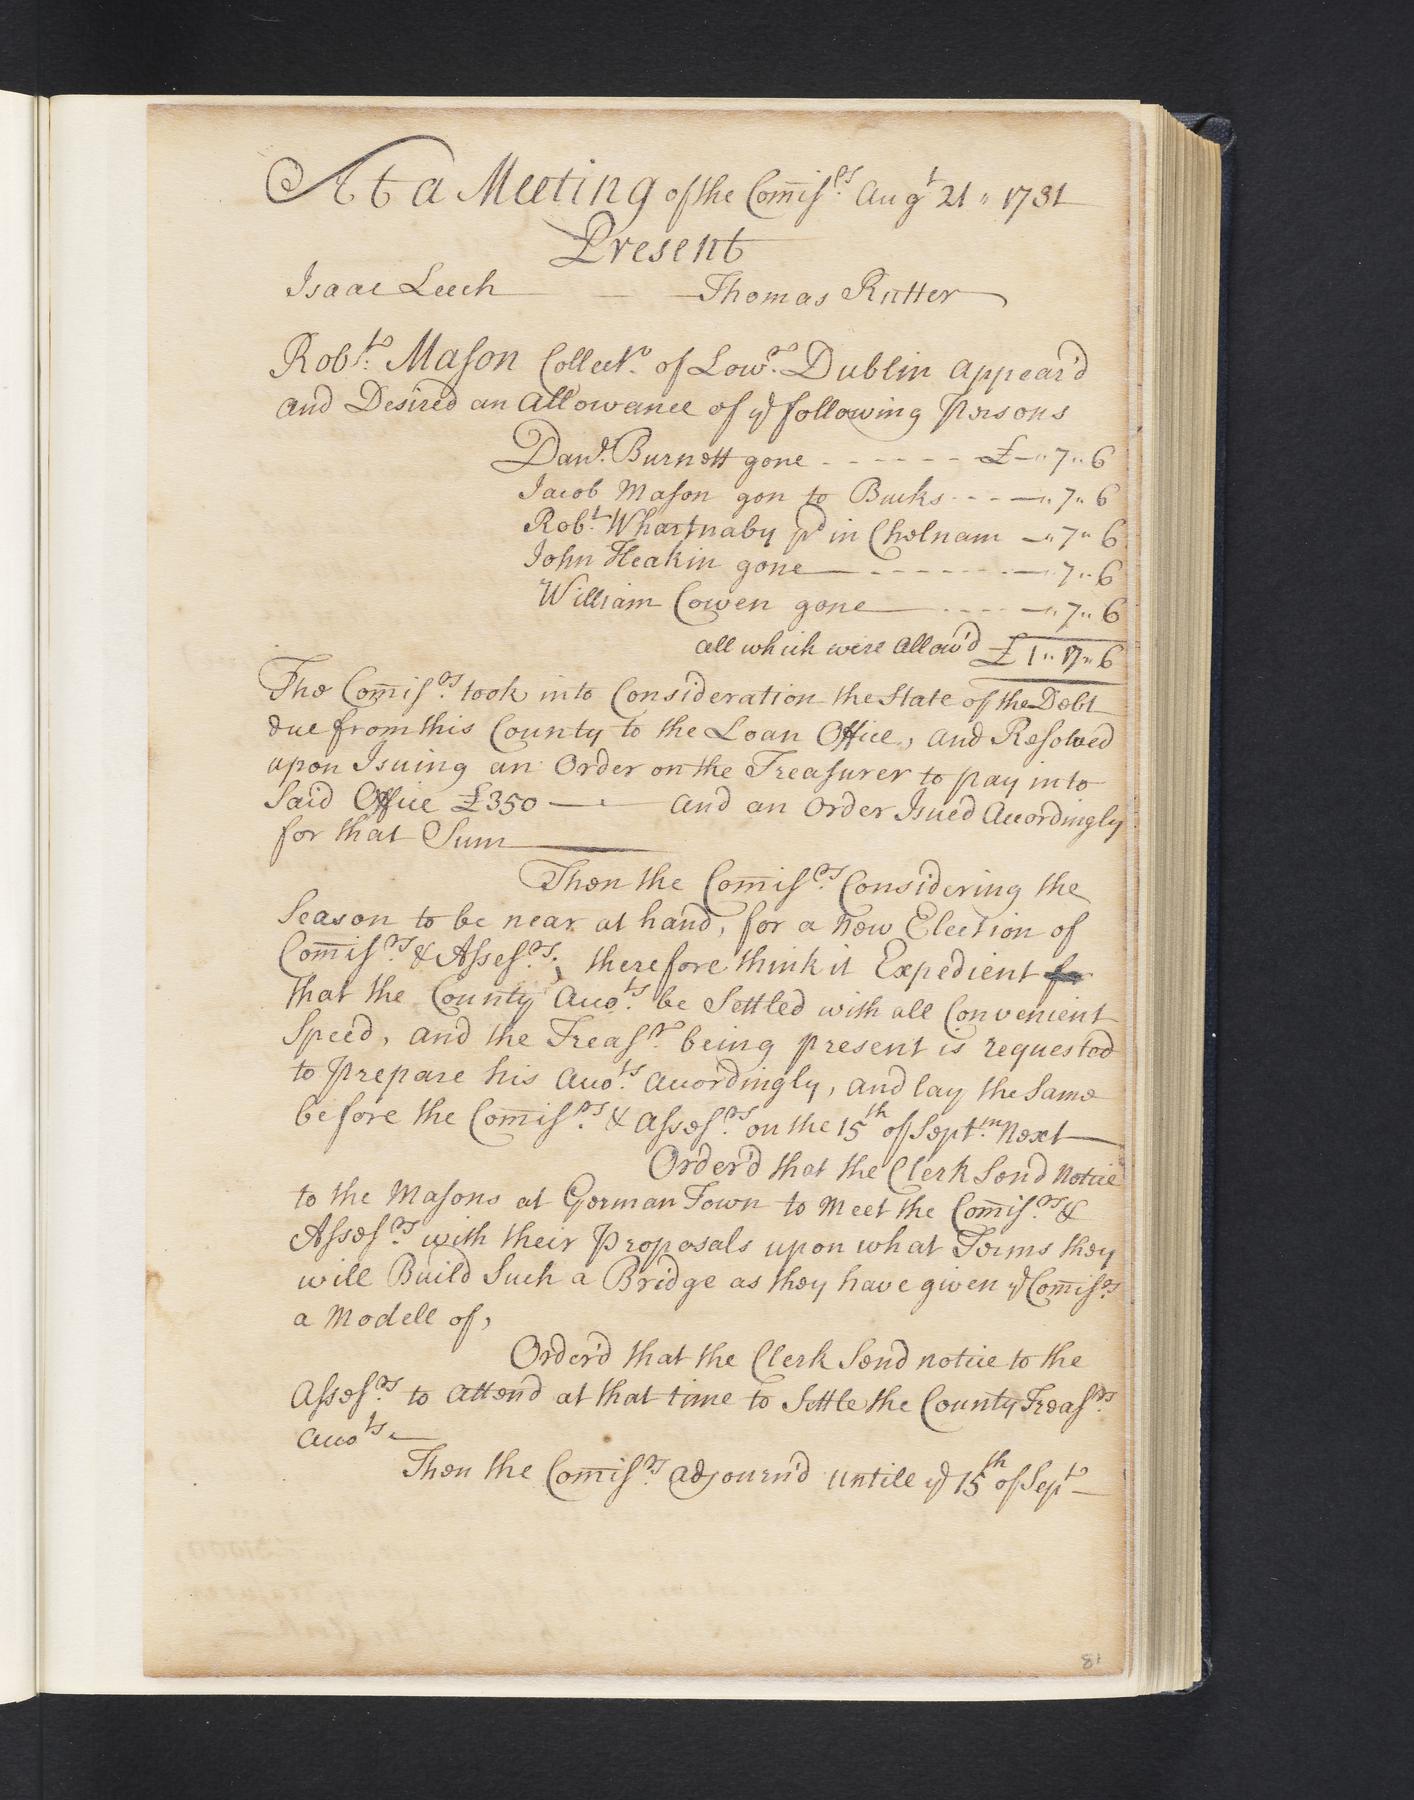 At a Meeting of the Comis.rs Aug.t 21 " 1731
Present
Isaac Leech — Thomas Rutter
Rob.t Mason Collect.r of Low.r Dublin appear'd
and Desired an allowance of ye following Persons
Dan.l Burnett gone - - - - - - £ - " 7 " 6
Jacob Mason gon to Bucks - - - " 7 " 6
Rob.t Whartnaby pd in Chelnam - " 7 " 6
John Heakin gone - - - - - - " 7 " 6
William Cowen gone - - - - " 7 " 6
all which were allow'd £ 1 " 17 " 6
The Comis.rs took into Consideration the State of the Debt
due from this County to the Loan Office, and Resolved
upon Isuing an Order on the Treasurer to pay into
Said Office £350 — and an Order Isued Accordingly
for that Sum
Then the Comis.rs Considering the
Season to be near at hand, for a new Election of
Comis.rs & Asses.rs; therefore think it Expedient
that the County Acco.ts be Settled with all Convenient
Speed, and the Treas.r being present is requested
to prepare his Acco.ts accordingly, and lay the Same
before the Comis.rs & Asses.rs on the 15th of Sept.m Next
Order'd that the Clerk Send Notice
to the Masons at German Town to meet the Comis.rs &
Asses.rs with their Proposals upon what Terms they
will Build Such a Bridge as they have given ye Comis.rs
a Modell of,
Order'd that the Clerk Send notice to the
Asses.rs to attend at that time to Settle the County Treas.rs
Acco.ts
Then the Comis.rs adjourn'd untill ye 15th of Sept.r
81